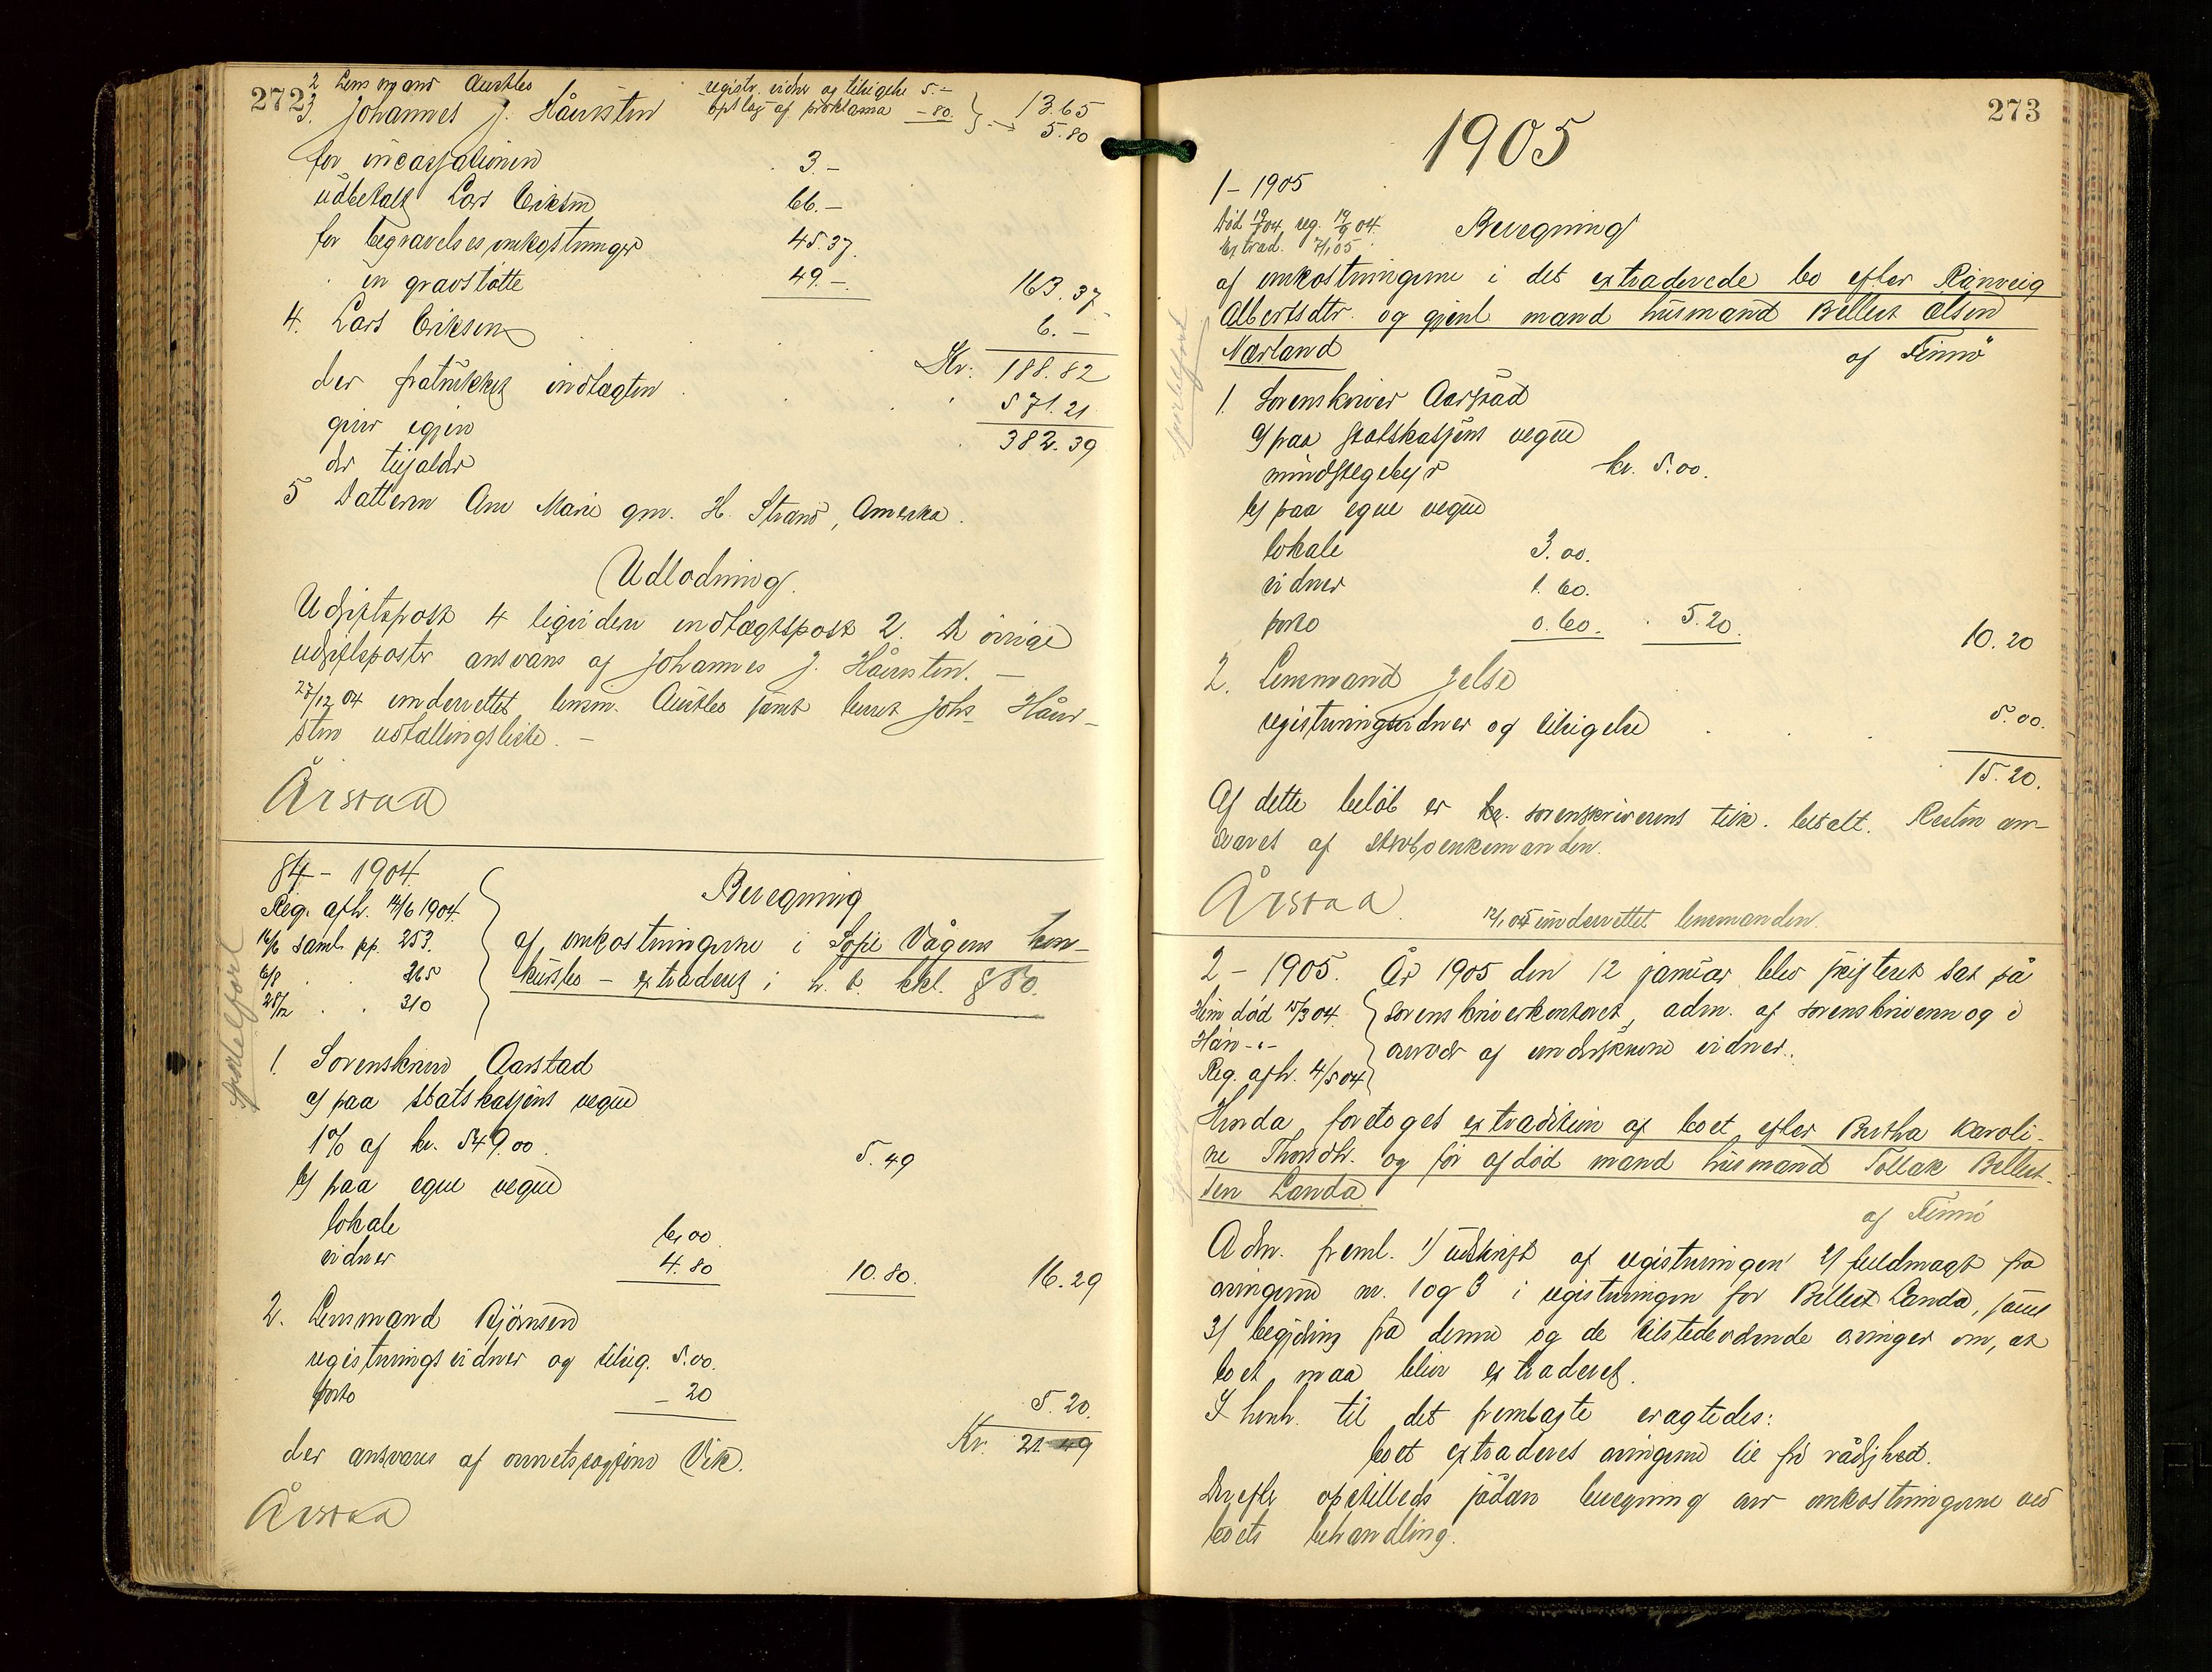 272
2 Lensmand Austbø registr. vidner og tilsigelse 5.–
3. Johannes J. Håursten opslag af proklama – 80. 13.65
5.80
for incassationen 3.–
udbetalt Lars Eriksen 66.–
for begravelsesomkostninger 45.37.
en gravstøtte 49.– 163.37
4. Lars Eriksen 6.–
Kr: 188.82
der fratrukket indtægten 571.21
giver igjen 382.39
der tilfalder
5 Datteren Ane Marie gm. H. Strand, Amerika.
Udlodning.
Udgiftspost 4 ligvideres indtægtspost 2. De øvrige
udgiftsposter ansvares af Johannes J. Håursten. –
27/12 04 underrettet lensm. Austbø samt sendt Johs Håur-
sten udtallingsliste. –
Årstad
84 – 1904.
Reg. afh. 14/6 1904.
16/6 saml. pp. 253.
6/8 . . 265
28/12 . . 310
Beregning
af omkostningerne i Sofie Vågens kon-
kursbo – extraderet i h. t. kkl. § 80.
Sportelført
1. Sorenskriver Aarstad
a) paa statskassens vegne
1% af kr. 549.00. 5.49
b) paa egne vegne
lokale 6.00
vidner 4.80 10.80. 16.29
2. Lensmand Bjørnsen
registringsvidner og tilsig. 5.00.
porto – 20 5.20.
Kr. 21.49
der ansvares af overretssagfører Vik.
Årstad
273
1905
1 – 1905
Død 19/ 04, reg. 19/9 04.
Extrad. 7/1 05.
Beregning
af omkostningerne i det extraderede bo efter Ranveig
Albertsdtr. og gjenl. mand husmand Bellest Olsen
Nærland af Finnø
Sportelført
1. Sorenskriver Aarstad
a) paa statskassens vegne
mindstegebyr kr. 5.00.
b) paa egne vegne
lokale 3.00.
vidner 1.60.
porto 0.60. 5.20. 10.20
2. Lensmand Jelse
registringsvidner og tilsigelse 5.00.
15.20.
Af dette beløb er sorenskriverens tilk. betalt. Resten an-
svares af sterboenkemanden.
Årstad
12/1 05 underrettet lensmanden.
2 – 1905. År 1905 den 12 januar blev skifteret sat på
Hun død 15/3 04. sorenskriverkontoret, adm. af sorenskriveren og i
Han –"– overvær af underskrevne vidner.
Reg. afh. 4/5 04
Hvorda foretoges extradition af boet efter Bertha Karoli-
ne Thorsdtr. og før afdød mand husmand Tollak Bellest-
sen Landa
af Finnø
Adm. freml. 1) udskrift af registringen 2) fuldmagt fra
arvingerne nr. 1 og 3 i registringen for Bellest Landa, samt
3) begjæring fra denne og de tilstedeværende arvinger om, at
boet maa blive extraderet.
I henh. til det fremlagte eragtedes:
boet extraderes arvingerne til fri rådighed.
Derefter opstilledes sådan beregning over omkostningerne ved
boets behandling.